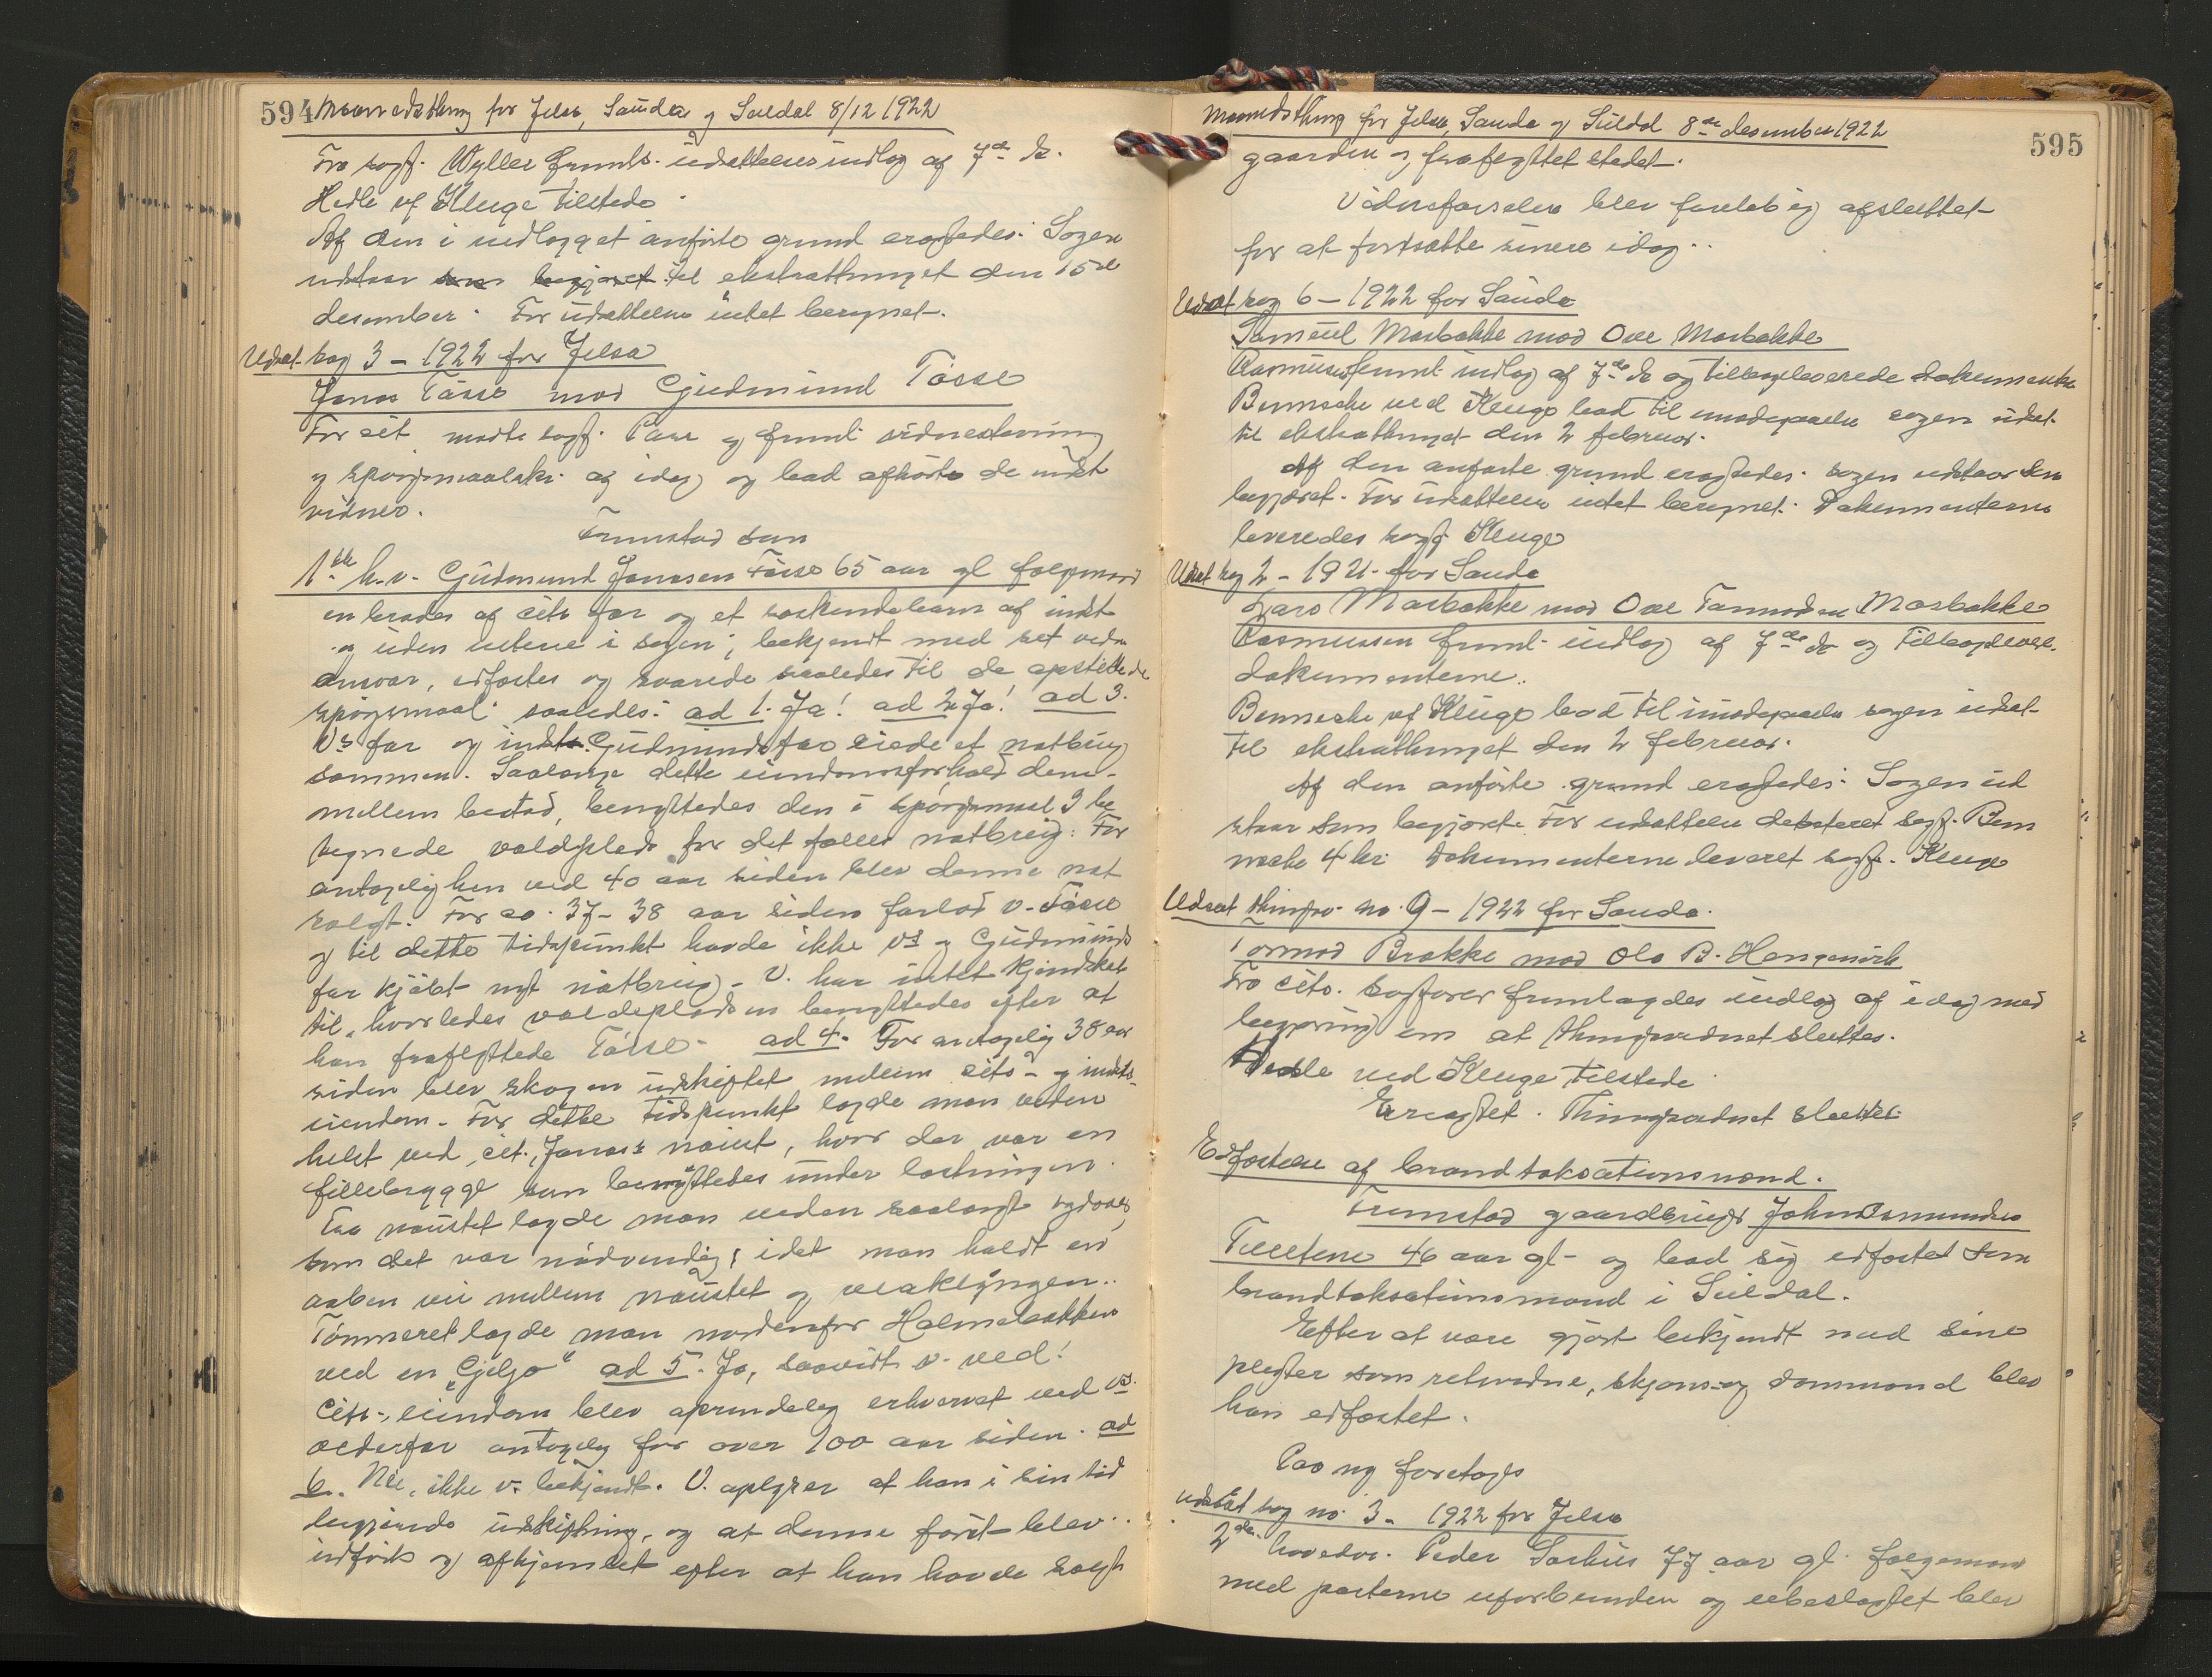 594 Maanedsthing for Jelse, Sauda og Suldal 8/12 1922
Fra sagf. Wyller fremls. udsættelsesindlæg af 7de ds.
Hedle vf Kluge tilstede.
Af den i indlægget anførte grund eragtedes: Sagen
udstaar som begjæret til ekstrathinget den 15de
desember. For udsættelsen intet beregnet.
Udsat sag 3 - 1922 for Jelsa
Jonas Tøsse mod Gudmund Tøsse
For cit. mødte sagf. Paus og freml. vidnestevning
og spørgsmaalskr. af idag og bad afhørte de indst.
vidner.
Fremstod som
1ste h.v. Gudmund Jonassen Tøsse 65 aar gl. følgmand
en broder af cits far og et søskendebarn af indst.
og uden interesse i sagen; bekjendt med sit vidne
ansvar, edfæstes og svarede saaledes til de opstillede
spørgsmaal saaledes: ad 1. Ja! ad 2 Ja! ad 3.
Vs far og indst. Gudmunds far eiede et notbrug
sammen. Saalænge dette eiendomsforhold dem-
mellem bestod, benyttedes den i spørgsmaal 3 be
tegnede voldplads for det fælles notbrug. For
antagelig hen ved 40 aar siden blev denne not
solgt. For ca. 37-38 aar siden forlod v. Tøsse
og til dette tidspunkt havde ikke vs og Gudmunds
far kjøbt nyt notbrug. V. har intet kjendskab
til, hvorledes voldepladsen benyttedes efter at
han fraflyttede Tøsse. ad 4. For antagelig 38 aar
siden blev skogen udskiftet mellem cits- og indsts-
eiendom. Før dette tidspunkt lagde man veden
helst ved cit. Jonas's naust, hvor der var en
fillebrygge som benyttedes under lastningen.
Fra naustet lagde man veden saalangt sydover,
som det var nødvendig, idet man holdt en
aaben vei mellem naustet og vedklyngen.
Tømmeret lagde man nordenfor Holmebakken
ved en "Gjeljo" ad 5. Ja, saavidt v. ved!
Cits- eiendom blev oprindelig erhvervet ved vs.
oldefar antagelig for over 100 aar siden. ad
6. Nei, ikke v. bekjendt. V. oplyser at han i sin tid
begjærede udskiftning, og at denne først blev
udført og afhjemlet efter at han havde solgt
Maanedsthing for Jelse, Sauda og Suldal 8de desember 1922 595
gaarden og fraflyttet stedet.
Vidneførselen blev foreløbig afsluttet
for at fortsætte senere idag.
Udsat sag 6 - 1922 for Sauda
Samuel Mosbakke mod Ove Mosbakke
Rasmussen freml. indlæg af 7de ds og tilbageleverede dokumenter
Bennecke ved Kluge bad til imødegaaelse sagen udsat
til ekstrathinget den 2 februar.
Af den anførte grund eragtedes: sagen udstaar som
begjæret. For udsættelsen intet beregnet. Dokumenterne
leveredes sagf. Kluge
Udsat sag 2 - 1921 for Sauda
Lars Mosbakke mod Ove Tormodsen Mosbakke
Rasmussen freml. indlæg af 7de ds og tilbagelever.
dokumenterne.
Bennecke vf Kluge bad til imødegaaelse sagen udsat
til ekstrathinget den 2 februar.
Af den anførte grund eragtedes: Sagen ud
staar som begjæret. For udsættelse debiteret sagf. Ben
necke 4 kr. Dokumenterne leveret sagf. Kluge
Udsat thingsv. no. 9 - 1922 for Sauda.
Tormod Brekke mod Ola B.
Fra cits. sagfører fremlagdes indlæg af idag med
begjæring om at thingsvidnet sluttes.
Hedle ved Kluge tilstede
Eragtet. Thingsvidnet sluttes.
Edfæstelse af brandtaksationsmænd.
Fremstod gaardbruger John
46 aar gl. og bad sig edfæstet som
brandtaksationsmand i Suldal.
Efter at være gjort bekjendt med sine
pligter som retsvidne, skjøns- og domsmand blev
han edfæstet.
Paa ny foretages
udsat sag no. 3 - 1922 for Jelsa
2det hovedv. Peder 77 aar gl. følgemand
med parterne uforbunden og ubeslægtet blev